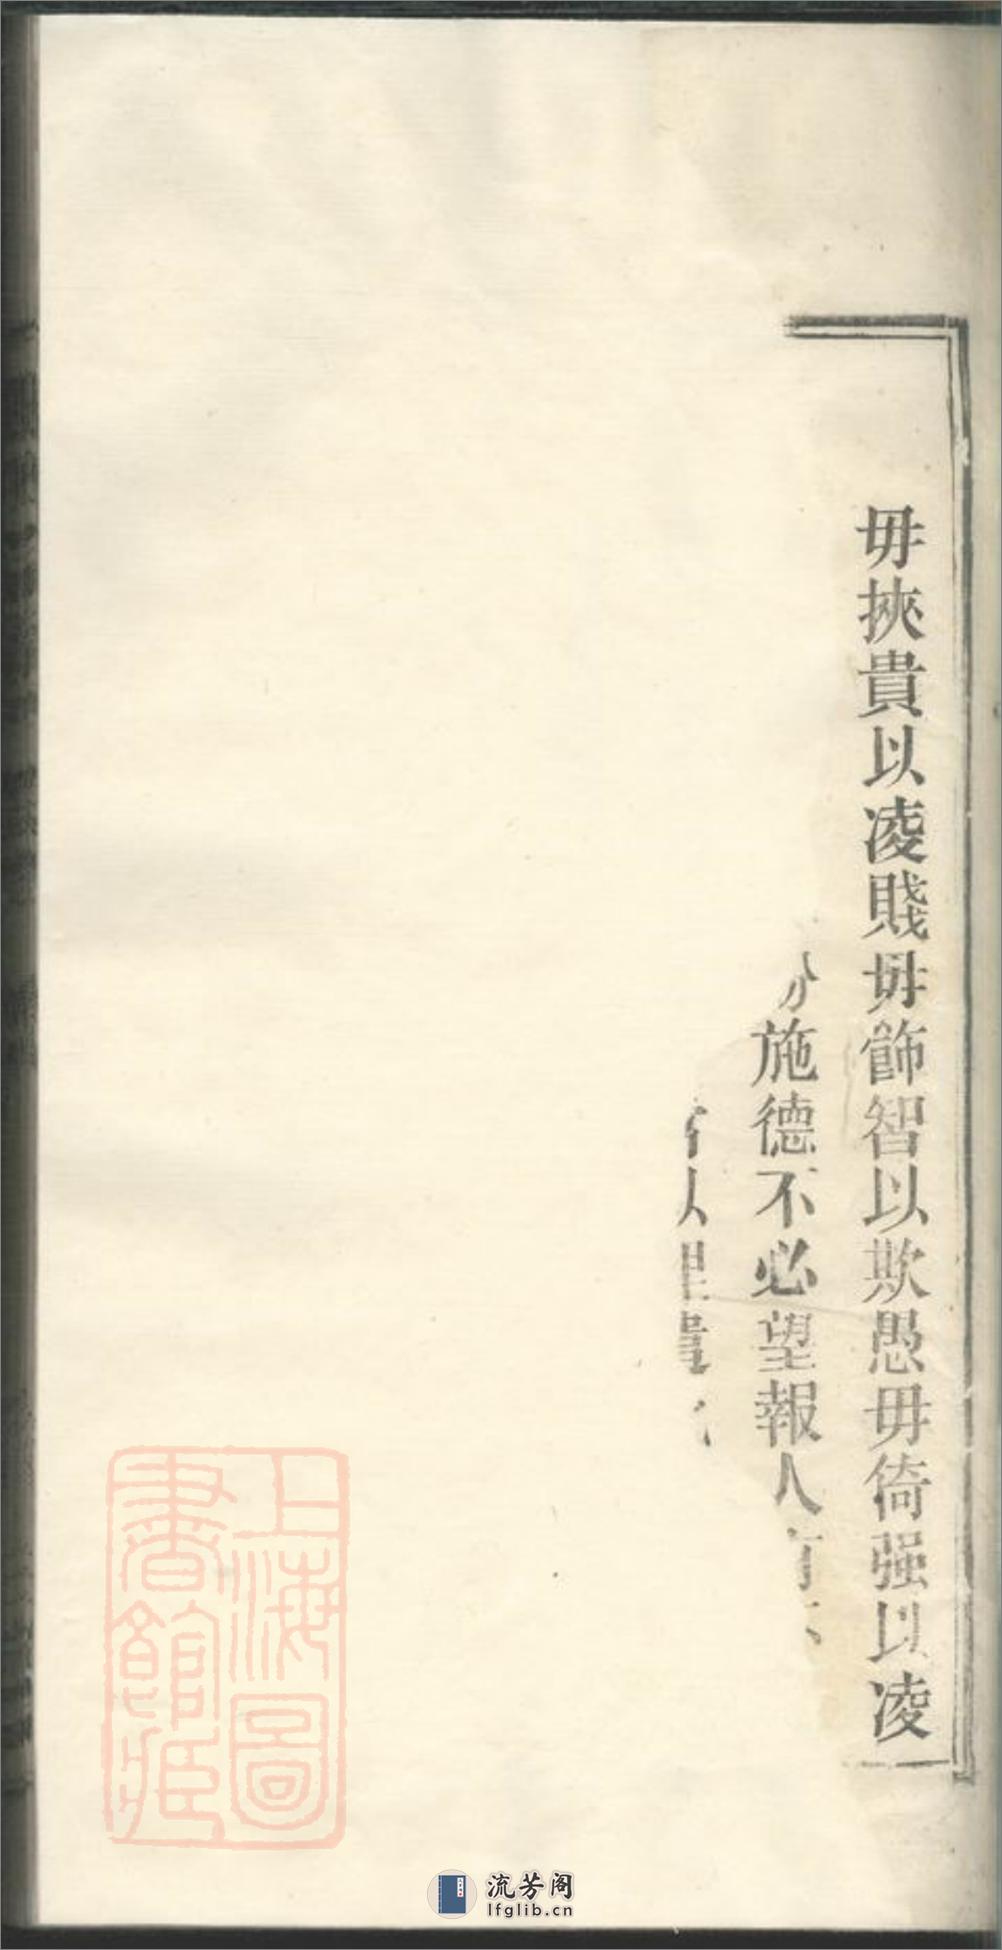 毋挾貴以凌賤毋飾智以欺愚毋倚强以凌
施德不必望報人有不
以理遣
上海圖書館藏
流芳阁
lfglib.cn